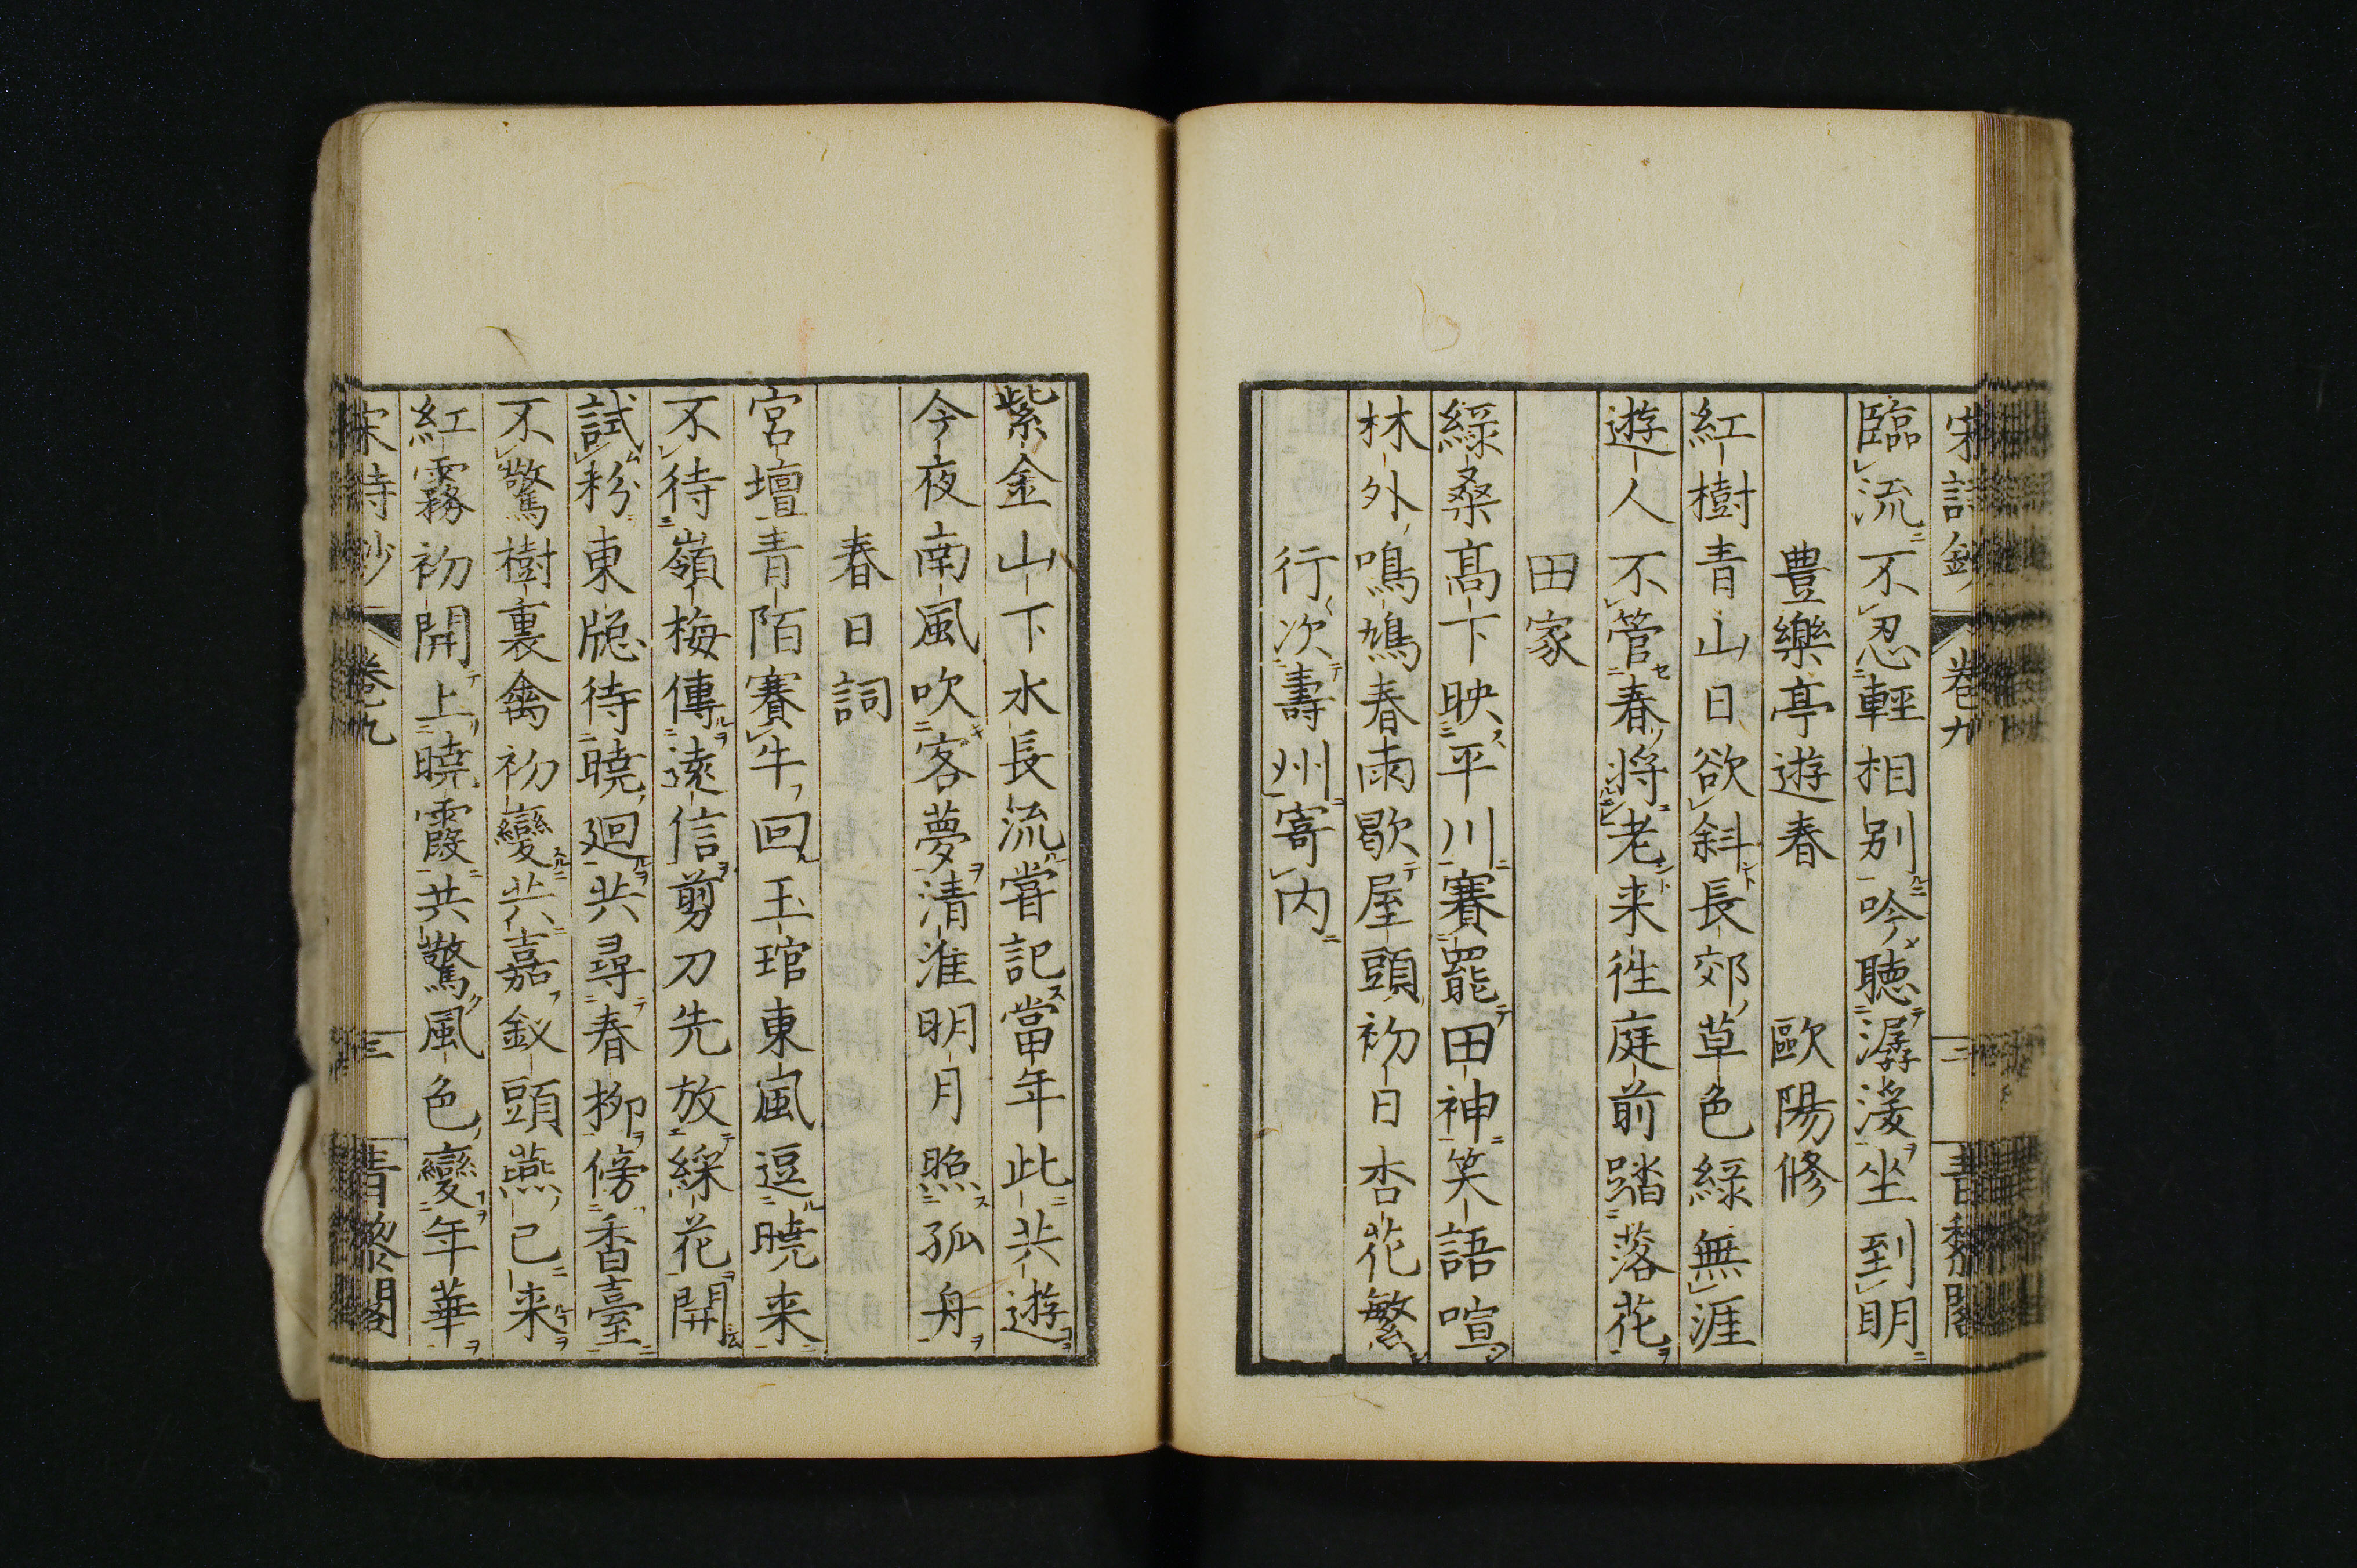 宋詩鈔 卷九 二 青藜閣
臨流不忍輕相別吟聴潺湲坐到明
豊樂亭遊春 歐陽修
紅樹青山日欲斜長郊草色緑無涯
遊人不管春将老来徃庭前踏落花
田家
緑桒髙下映平川賽罷田神笑語喧
林外鳴鳩春雨歇屋頭初日杏花繁
行次壽州寄内
紫金山下水長流嘗記當年此共遊
今夜南風吹客夢清淮明月照孤舟
春日詞
宮壇青陌賽牛回玉琯東風逗曉来
不待嶺梅傳遠信剪刀先放綵花開
試粉東牕待曉廻共尋春柳傍香臺
不驚樹裏禽初變共嘉釵頭燕已来
紅霧初開上曉霞共驚風色變年華
宋詩鈔 卷九 三 青藜閣